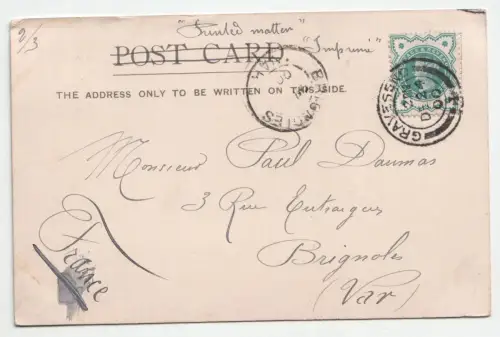 2/3
"Printed matter"
"Imprimé"
POST CARD
THE ADDRESS ONLY TO BE WRITTEN ON THIS SIDE.
BRIGNOLES
VAR
GRAVESEND
DE
00
Monsieur Paul Daumas
3 Rue Entraigues
Brignoles
(Var)
France